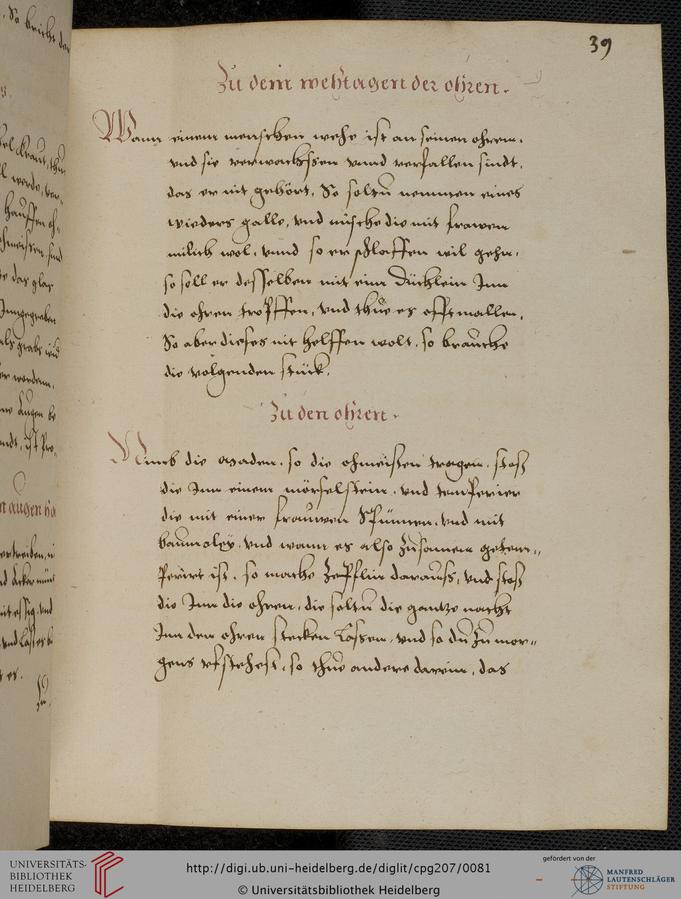 39
Zu dem wehtagen der ohren.
Wann einem menschen wehe ist an seinen ohren,
vnd sie verwachssen vnnd verfallen sindt,
das er nit gehört, So soltu nemmen eines
wieders galle, vnd mische die mit frawen
milich wol, vnnd so er schlaffen wil gehn,
so soll er desselben mit eim düchlein Inn
die ohren tropffen, vnd thue es offtmallen,
So aber dieses nit helffen wolt, so brauche
die volgenden stück.
Zu den ohren.
Nimb die so die ohmeisten tragen, stoß
die Inn einem mörselstein, vnd temperier
die mit einer frauwen Spünnen, vnd mit
baumoley, vnd wann es also zusamen getem„
periert ist, so mache zepfflin darauß, vnd stoß
die Inn die ohren, die soltu die gantze nacht
Inn den ohren stecken lassen, vnd so du zu mor„
gens vfstehest, so thue andere darein, das
UNIVERSITÄTS-
BIBLIOTHEK
HEIDELBERG
http://digi.ub.uni-heidelberg.de/diglit/cpg207/0081
© Universitätsbibliothek Heidelberg
gefördert von der
MANFRED
LAUTENSCHLÄGER
STIFTUNG